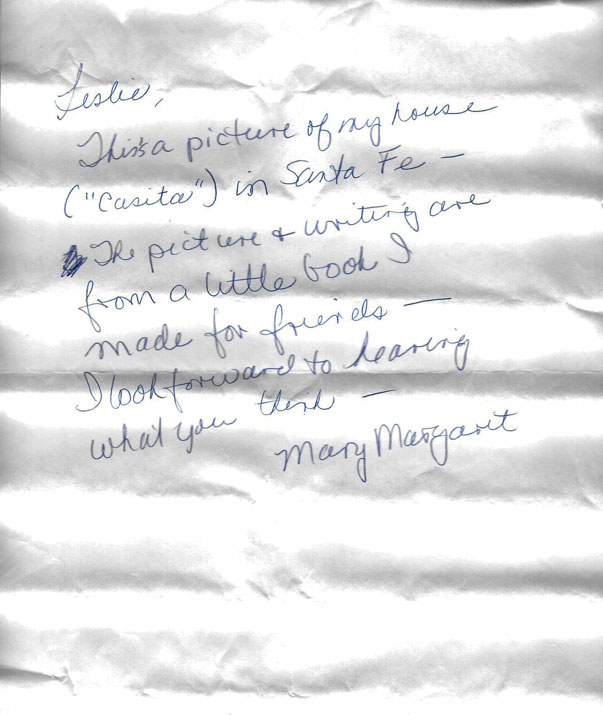 Leslie,
This's a picture of my house
("Casita") in Santa Fe —
The picture & writing are
from a little book I
made for friends —
I look forward to hearing
what you think —
Mary Margaret